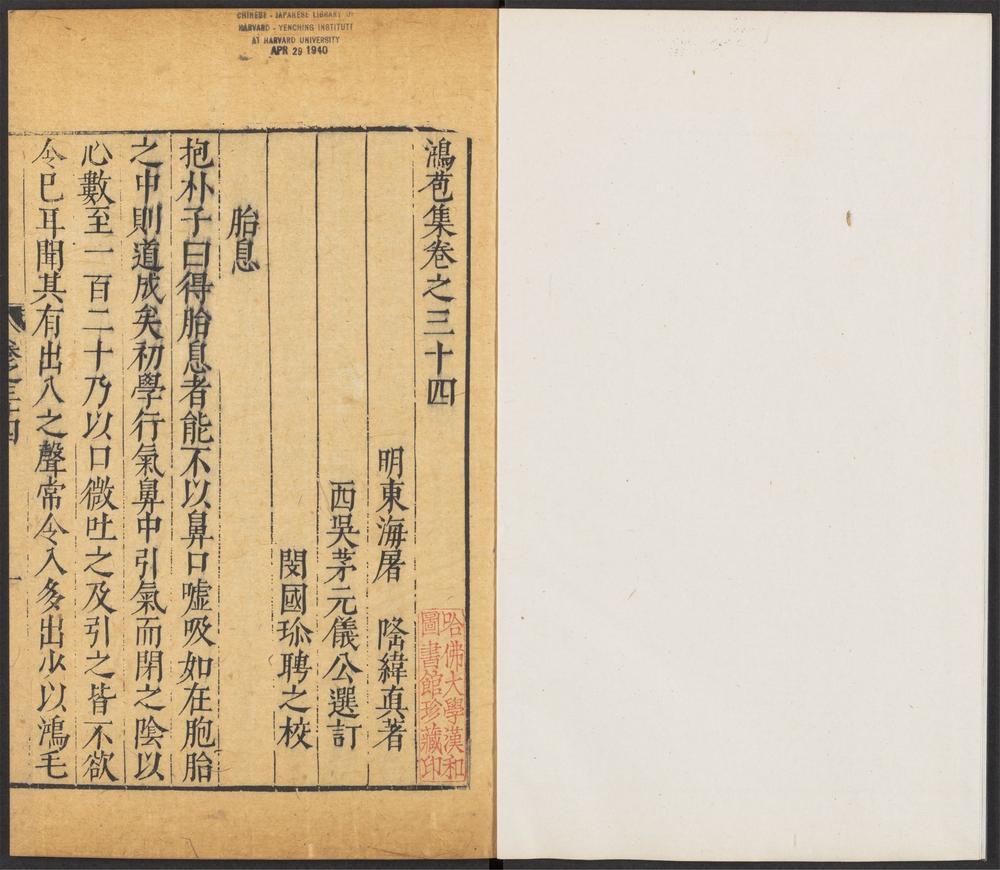 CHINESE - JAPANESE LIBRARY OF
HARVARD - YENCHING INSTITUTE
AT HARVARD UNIVERSITY
APR 29 1940
鴻苞集卷之三十四
明東海屠　隆緯真著
西吳茅元儀公選訂
閔國珎聘之校
胎息
抱朴子曰得胎息者能不以鼻口噓吸如在胞胎
之中則道成矣初學行氣鼻中引氣而閉之陰以
心數至一百二十乃以口微吐之及引之皆不欲
令巳耳聞其有出入之聲常令入多出少以鴻毛
卷之三十四
一
哈佛大學漢和
圖書館珍藏印